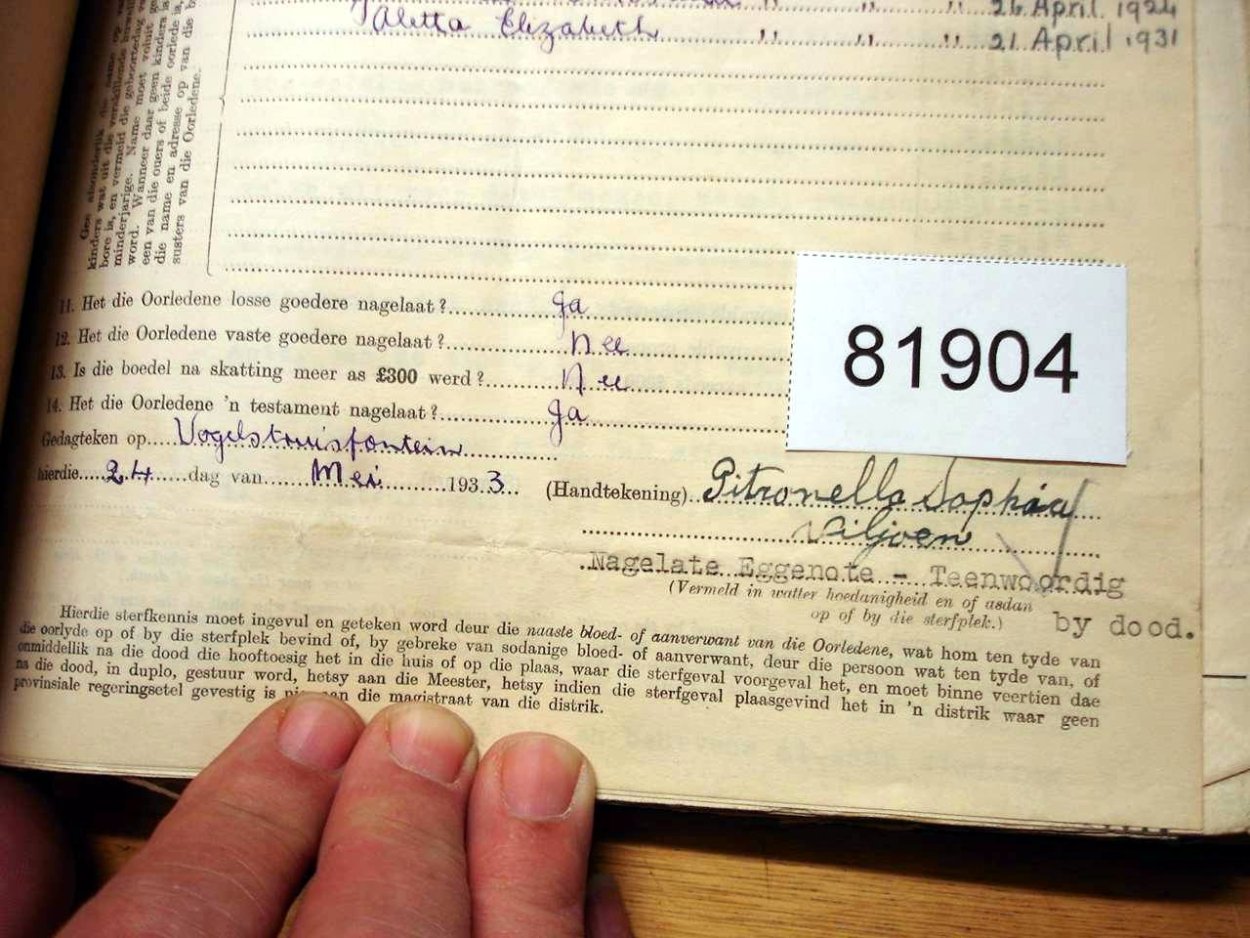 26 April 1924
Aletta Elizabeth " " " 21 April 1931
kinders wat uit die
bore is, en vermeld die geboortedag
minderjarige. Name moet voluit
word. Wanneer daar geen kinders is
een van die ouers of beide oorlede is,
die name en adresse op van die
susters van die Oorledene.
11. Het die Oorledene losse goedere nagelaat? Ja
12. Het die Oorledene vaste goedere nagelaat? Nee
13. Is die boedel na skatting meer as £300 werd? Nee
14. Het die Oorledene 'n testament nagelaat? Ja
81904
Gedagteken op Vogelstruisfontein
hierdie 24 dag van Mei 1933
(Handtekening) Pitronella Sophia
Viljoen
Nagelate Eggenote - Teenwoordig
by dood.
(Vermeld in watter hoedanigheid en of asdan
op of by die sterfplek.)
Hierdie sterfkennis moet ingevul en geteken word deur die naaste bloed- of aanverwant van die Oorledene, wat hom ten tyde van
die oorlyde op of by die sterfplek bevind of, by gebreke van sodanige bloed- of aanverwant, deur die persoon wat ten tyde van, of
onmiddellik na die dood die hooftoesig het in die huis of op die plaas, waar die sterfgeval voorgeval het, en moet binne veertien dae
na die dood, in duplo, gestuur word, hetsy aan die Meester, hetsy indien die sterfgeval plaasgevind het in 'n distrik waar geen
provinsiale regeringsetel gevestig is aan die magistraat van die distrik.